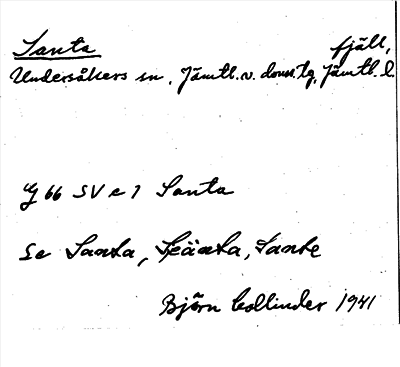 Santa fjäll,
Undersåkers sn, Jämtl. v. doms. tg, Jämtl. l.
G 66 SV e 7 Santa
Se Santa, Skänta, Sante
Björn Collinder 1941